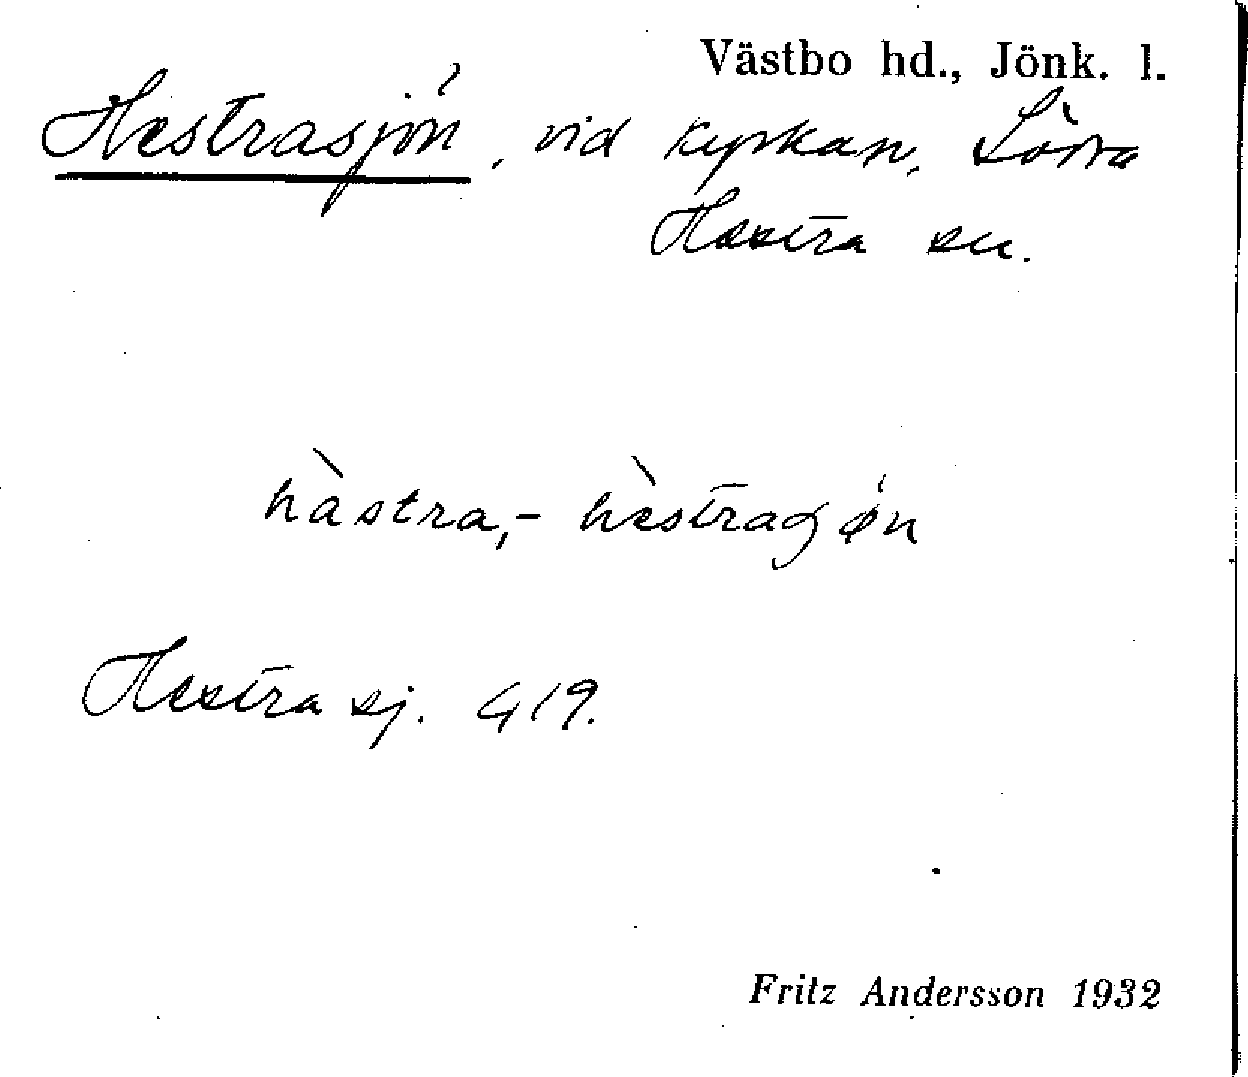 Västbo hd., Jönk. l.
Hestrasjön, vid kyrkan, Södra
Hestra sn.
hàstra,- hèstraʂǿn
Hestra sj. 419.
Fritz Andersson 1932